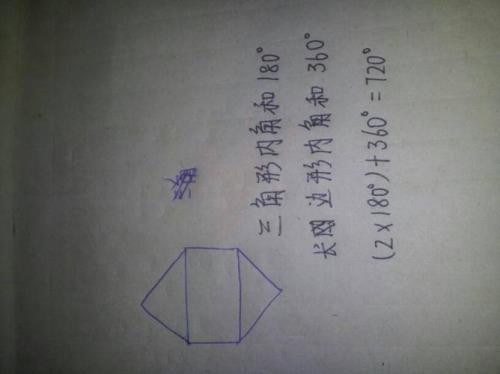 三角形内角和180°
长网边形内角和360°
(2×180°)+360°=720°